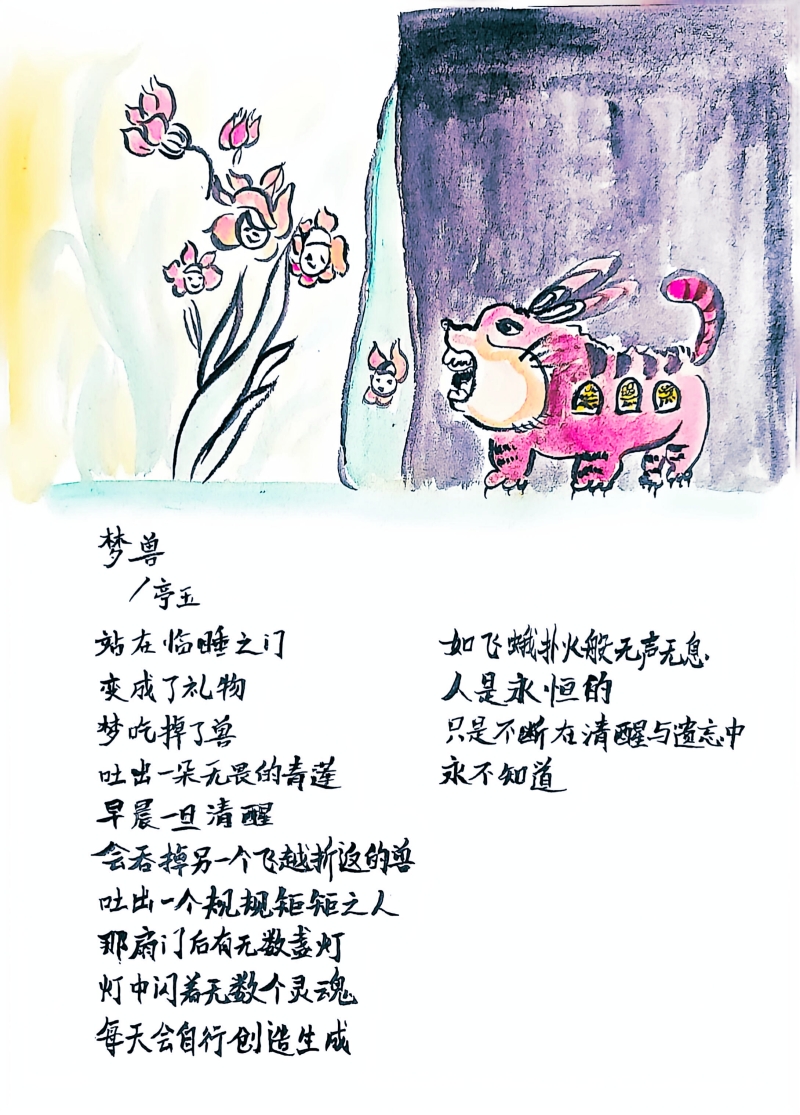 梦兽
/亭玉
站在临睡之门
变成了礼物
梦吃掉了兽
吐出一朵无畏的青莲
早晨一旦清醒
会吞掉另一个飞越折返的兽
吐出一个规规矩矩之人
那扇门后有无数盏灯
灯中闪着无数个灵魂
每天会自行创造生成
如飞蛾扑火般无声无息
人是永恒的
只是不断在清醒与遗忘中
永不知道